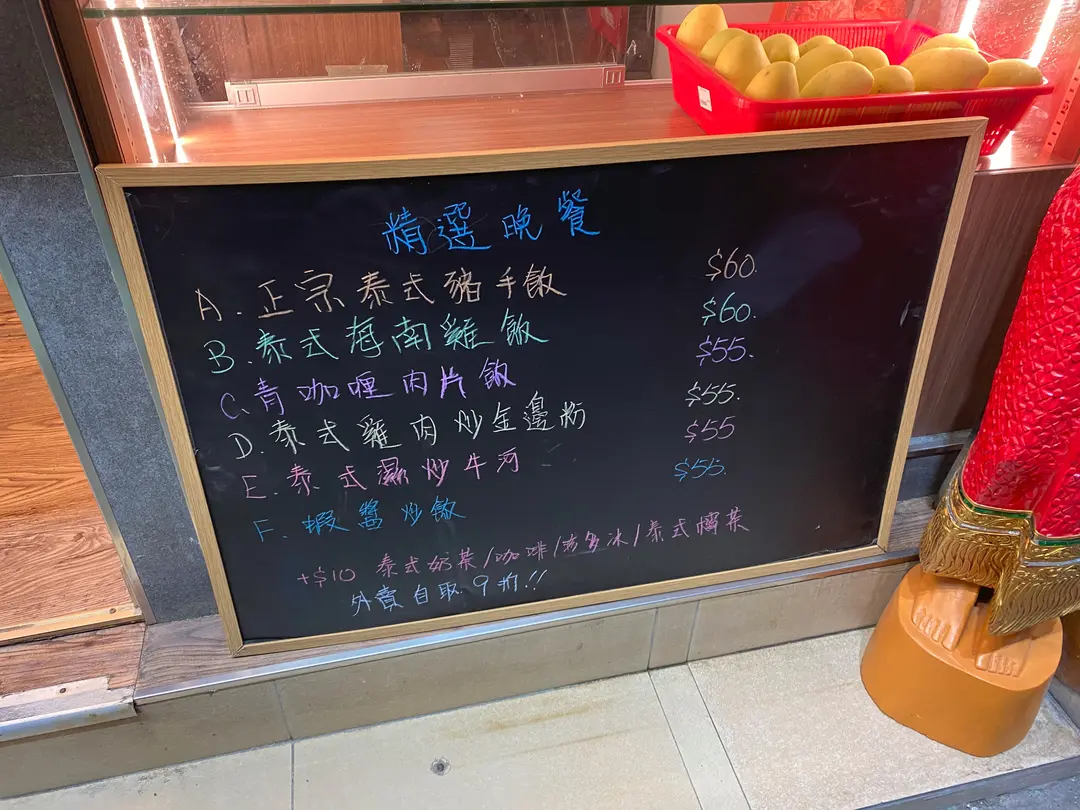 精選晚餐
A. 正宗泰式豬手飯 $60.
B. 泰式海南雞飯 $60.
C. 青咖喱肉片飯 $55.
D. 泰式雞肉炒金邊粉 $55.
E. 泰式濕炒牛河 $55
F. 蝦醬炒飯 $55.
+$10 泰式奶茶/咖啡/阿多冰/泰式檸茶
外賣自取9折!!